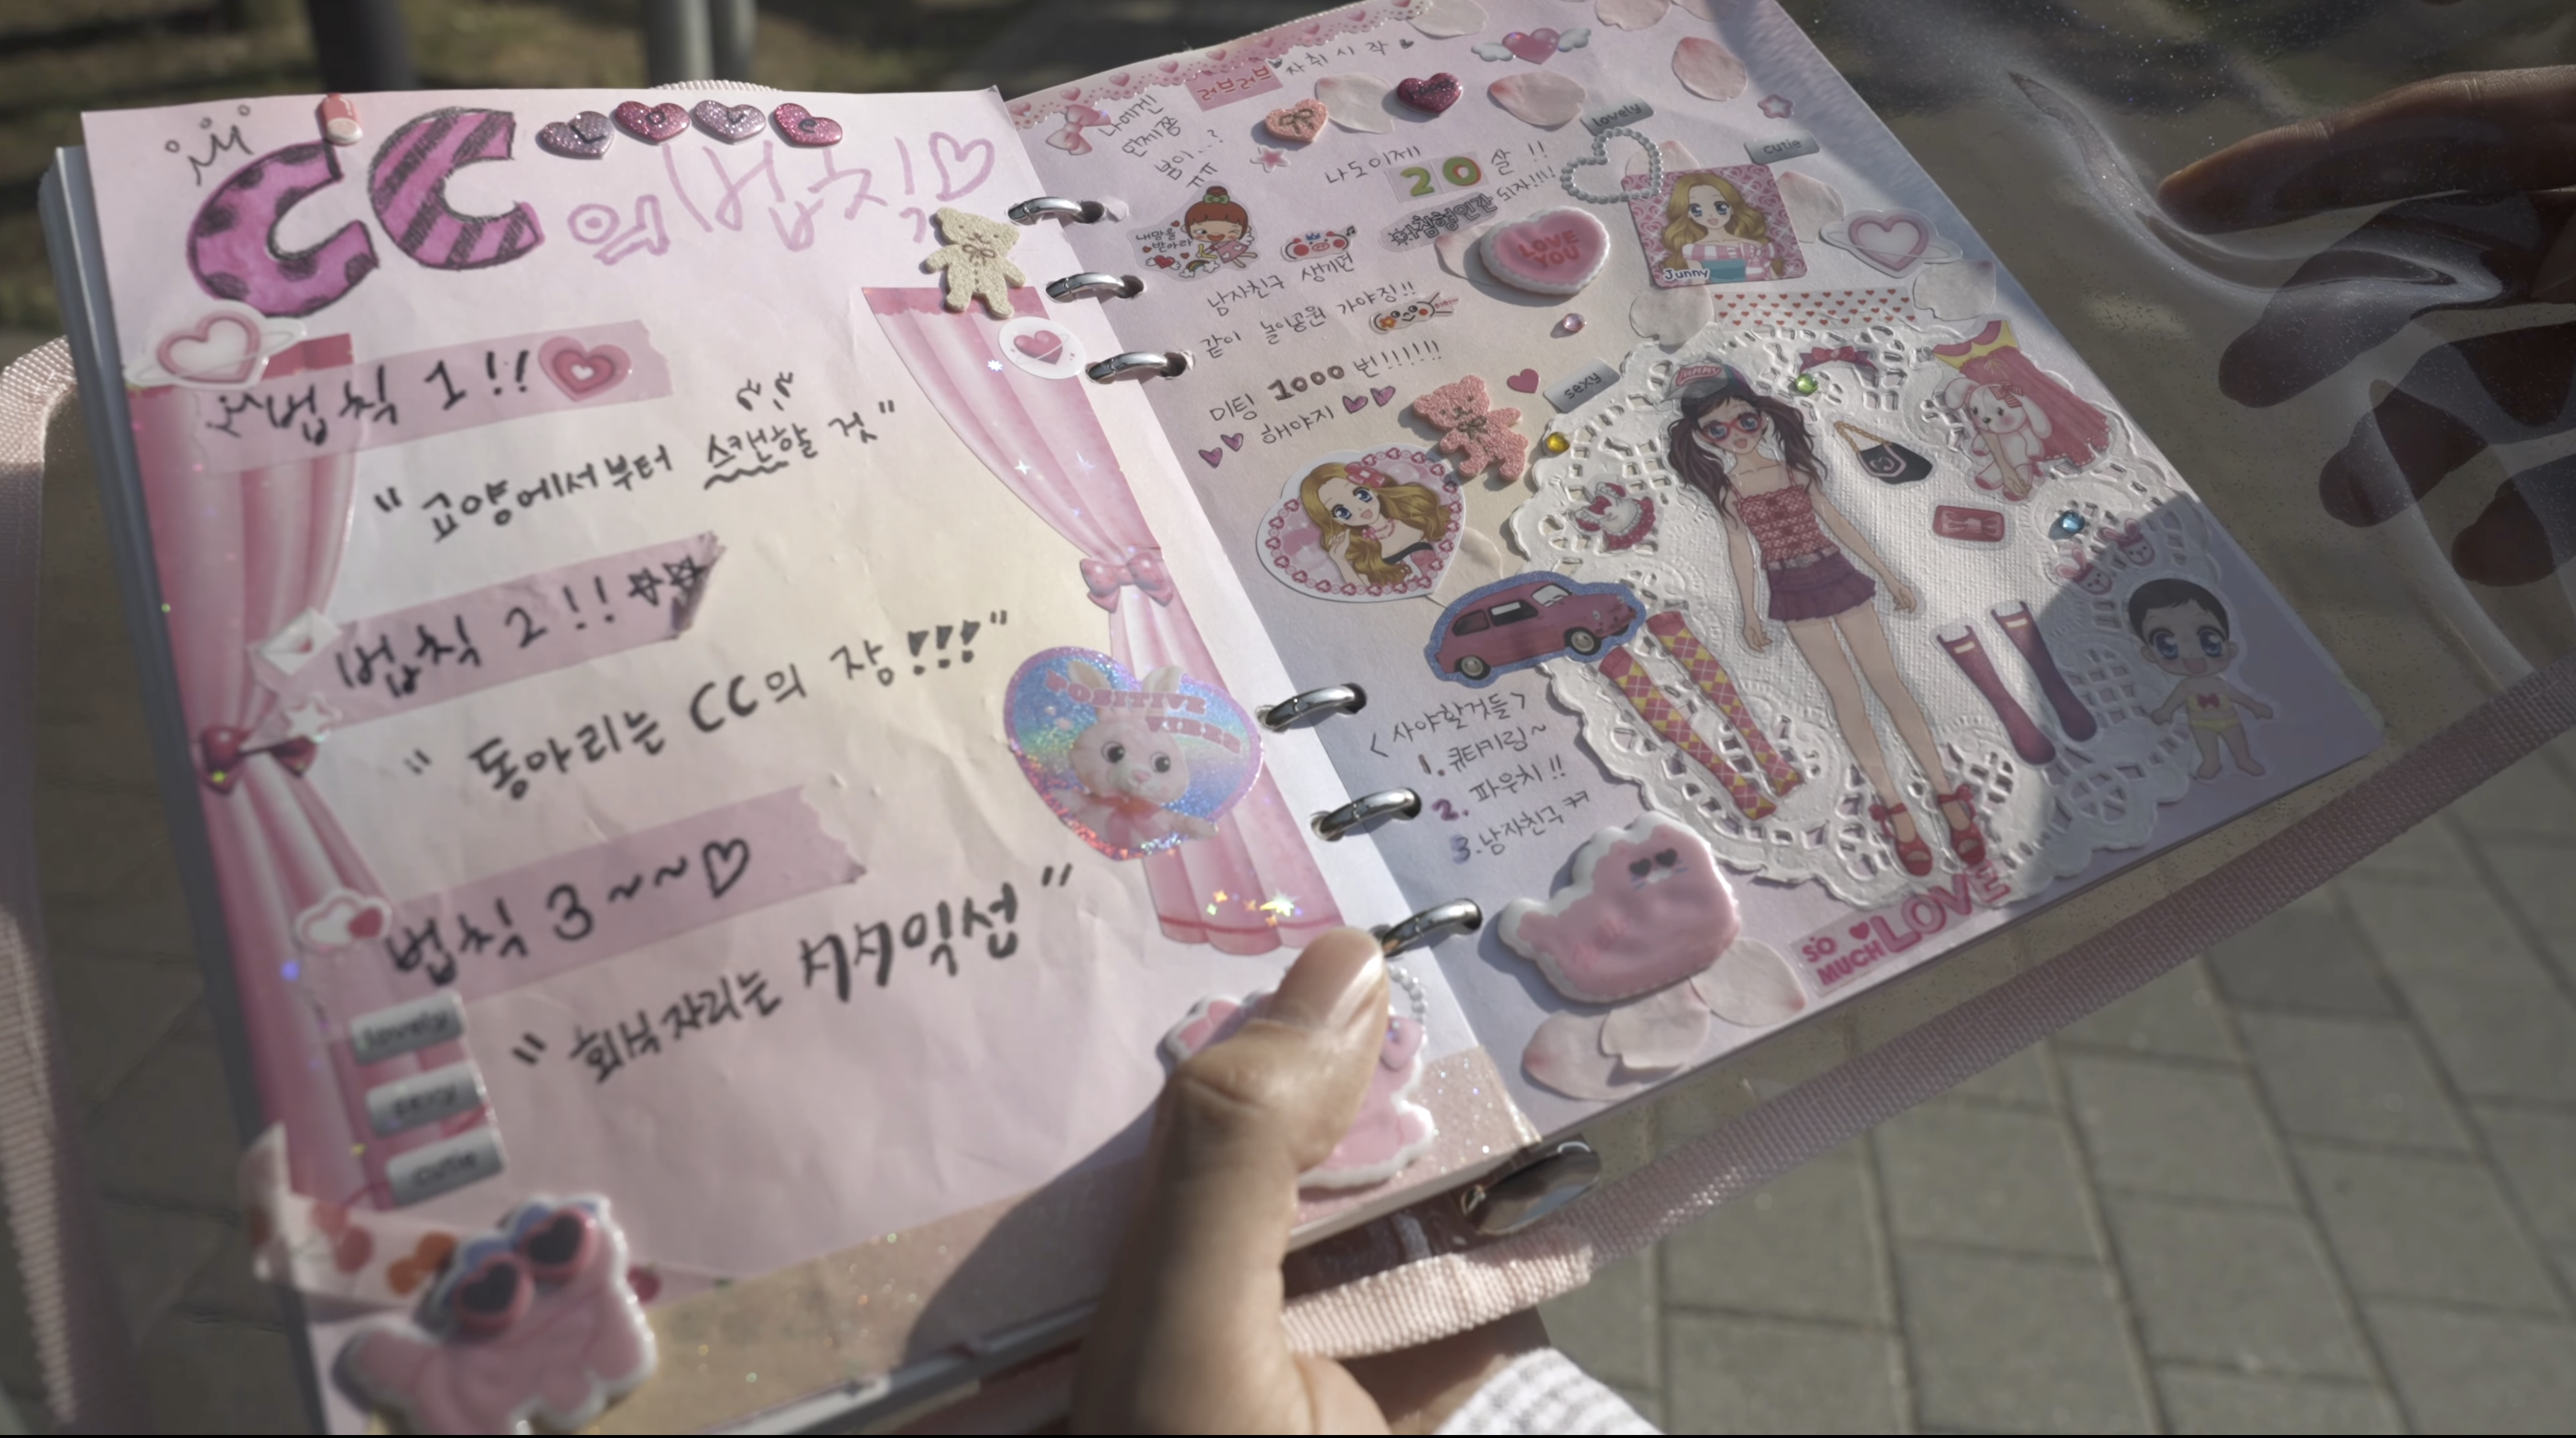 CC LOVE
의 법칙♡
법칙 1!!
"교양에서부터 스캔할 것"
법칙 2!!
"동아리는 CC의 장!!!"
법칙 3~~♡
"회식자리는 시시익선"
lovely
sexy
cutie
POSITIVE
VIBES
러브러브 자취시작
나에겐
언제쯤
봄이..?
ㅠㅠ
나도이제 20살!!
lovely
cutie
내맘을
받아라
아침형인간 되자!!!
LOVE
YOU
Junny
남자친구 생기면
같이 놀이공원 가야징!!
미팅 1000번!!!!!!
해야지
sexy
Junny
<사야할것들>
1.큐티키링~
2.파우치!!
3.남자친구ㅋㅋ
SO
MUCH LOVE